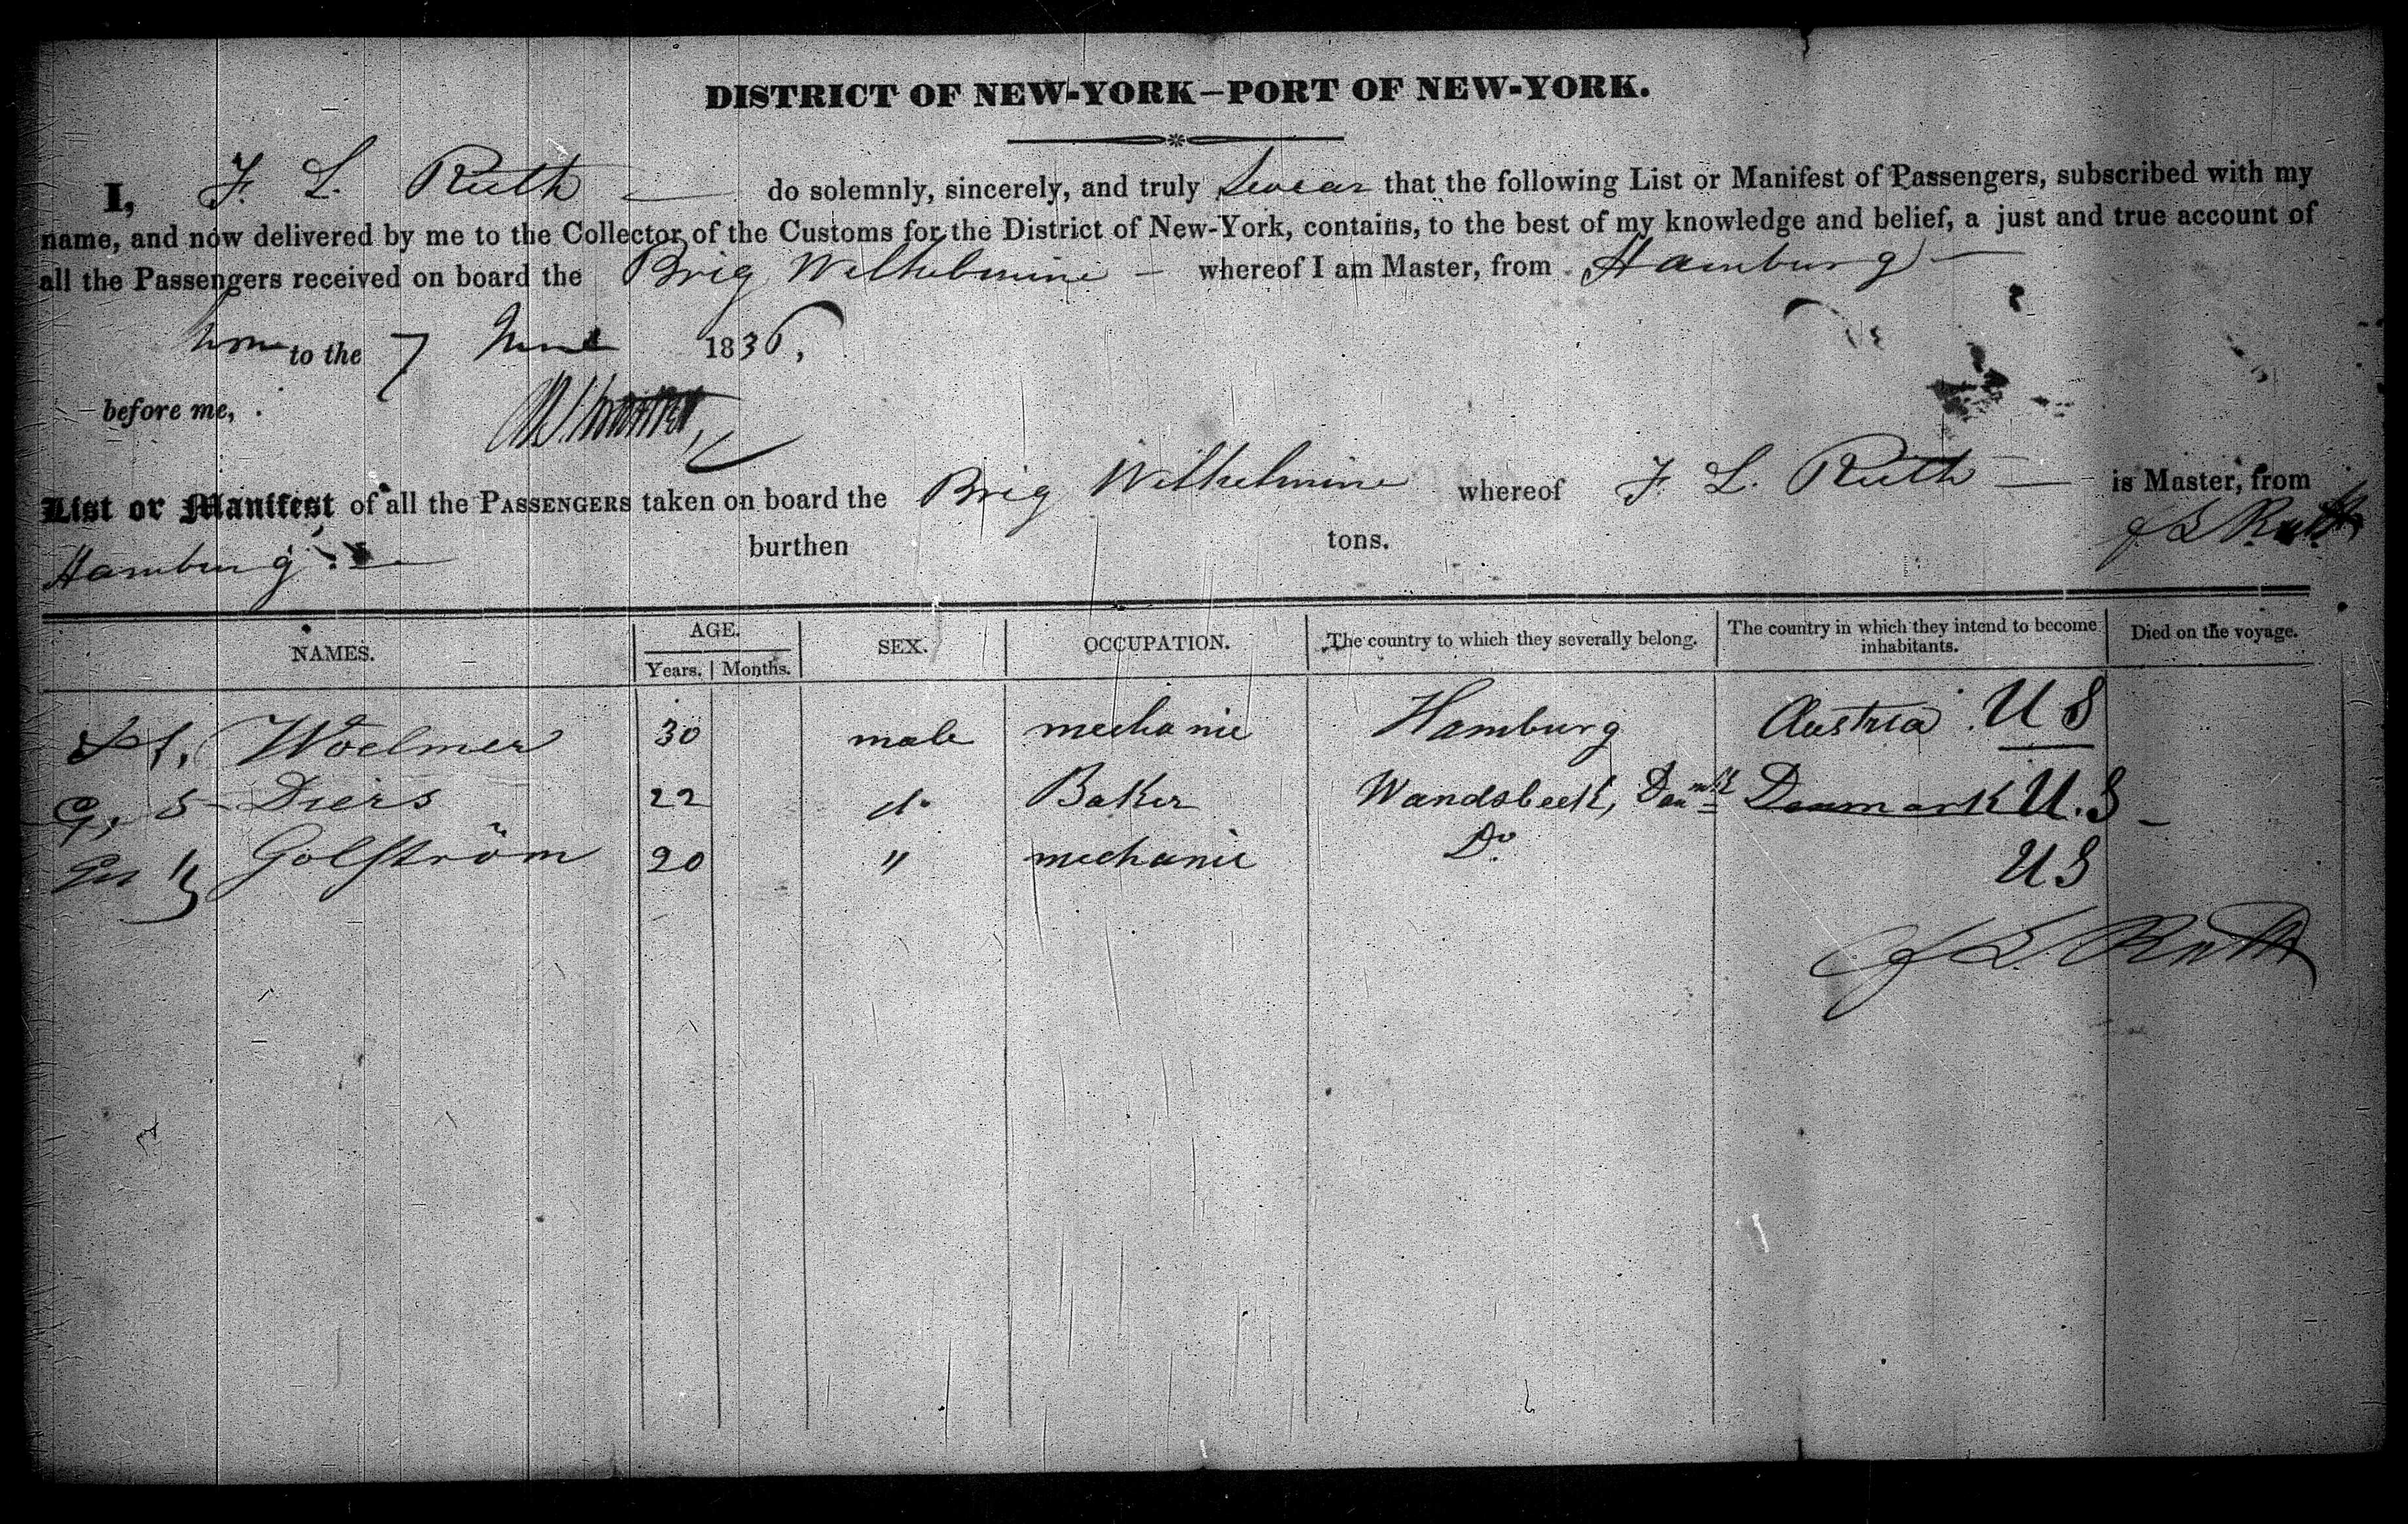 DISTRICT OF NEW-YORK—PORT OF NEW-YORK.
I, F. L. Ruth do solemnly, sincerely, and truly Swear that the following List or Manifest of Passengers, subscribed with my
name, and now delivered by me to the Collector of the Customs for the District of New-York, contains, to the best of my knowledge and belief, a just and true account of
all the Passengers received on board the Brig Wilhelmine whereof I am Master, from Hamburg
to the 7 June 1836,
before me,
List or Manifest of all the PASSENGERS taken on board the Brig Wilhelmine whereof F. L. Ruth is Master, from
Hamburg burthen tons. F L Ruth
NAMES. AGE. SEX. OCCUPATION. The country to which they severally belong. The country in which they intend to become inhabitants. Died on the voyage.
Years. Months.
Woelmer 30 male mechanic Hamburg Austria U S
G, S Diers 22 do Baker Wandsbeck, Danmk Danmark U.S
Golström 20 " mechanic Do U S
F L. Ruth